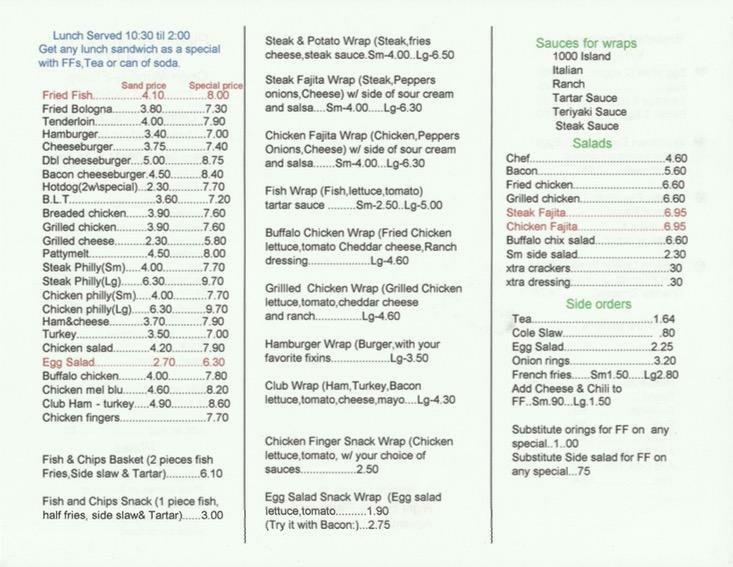 Lunch Served 10:30 til 2:00
Get any lunch sandwich as a special
with FFs,Tea or can of soda.
Sand price Special price
Fried Fish.............4.10...........8.00
Fried Bologna........3.80...........7.30
Tenderloin.............4.00...........7.90
Hamburger............3.40...........7.00
Cheeseburger........3.75...........7.40
Dbl cheeseburger....5.00..........8.75
Bacon cheeseburger.4.50.........8.40
Hotdog(2w\special)...2.30..........7.70
B.L.T.......................3.60..........7.20
Breaded chicken.......3.90..........7.60
Grilled chicken..........3.90..........7.60
Grilled cheese...........2.30..........5.80
Pattymelt..................4.50..........8.00
Steak Philly(Sm).....4.00............7.70
Steak Philly(Lg)......6.30............9.70
Chicken philly(Sm)....4.00..........7.70
Chicken philly(Lg).....6.30..........9.70
Ham&cheese..........3.70...........7.90
Turkey.....................3.50..........7.00
Chicken salad...........4.20..........7.90
Egg Salad.................2.70.........6.30
Buffalo chicken.........4.00..........7.80
Chicken mel blu.......4.60...........8.20
Club Ham - turkey.....4.90...........8.60
Chicken fingers...........................7.70
Fish & Chips Basket (2 pieces fish
Fries,Side slaw & Tartar)..........6.10
Fish and Chips Snack (1 piece fish,
half fries, side slaw& Tartar)......3.00
Steak & Potato Wrap (Steak,fries
cheese,steak sauce.Sm-4.00..Lg-6.50
Steak Fajita Wrap (Steak,Peppers
onions,Cheese) w/ side of sour cream
and salsa....Sm-4.00.....Lg-6.30
Chicken Fajita Wrap (Chicken,Peppers
Onions,Cheese) w/ side of sour cream
and salsa.......Sm-4.00....Lg-6.30
Fish Wrap (Fish,lettuce,tomato)
tartar sauce .........Sm-2.50..Lg-5.00
Buffalo Chicken Wrap (Fried Chicken
lettuce,tomato Cheddar cheese,Ranch
dressing....................Lg-4.60
Grillled Chicken Wrap (Grilled Chicken
lettuce,tomato,cheddar cheese
and ranch...............Lg-4.60
Hamburger Wrap (Burger,with your
favorite fixins..................Lg-3.50
Club Wrap (Ham,Turkey,Bacon
lettuce,tomato,cheese,mayo....Lg-4.30
Chicken Finger Snack Wrap (Chicken
lettuce,tomato, w/ your choice of
sauces..................2.50
Egg Salad Snack Wrap (Egg salad
lettuce,tomato..........1.90
(Try it with Bacon:)...2.75
Sauces for wraps
1000 Island
Italian
Ranch
Tartar Sauce
Teriyaki Sauce
Steak Sauce
Salads
Chef............................................4.60
Bacon..........................................5.60
Fried chicken...............................6.60
Grilled chicken.............................6.60
Steak Fajita.................................6.95
Chicken Fajita.............................6.95
Buffalo chix salad........................6.60
Sm side salad..............................2.30
xtra crackers................................30
xtra dressing............................... .30
Side orders
Tea............................................1.64
Cole Slaw.................................. .80
Egg Salad..................................2.25
Onion rings................................3.20
French fries.....Sm1.50....Lg2.80
Add Cheese & Chili to
FF..Sm.90...Lg.1.50
Substitute orings for FF on any
special..1..00
Substitute Side salad for FF on
any special...75